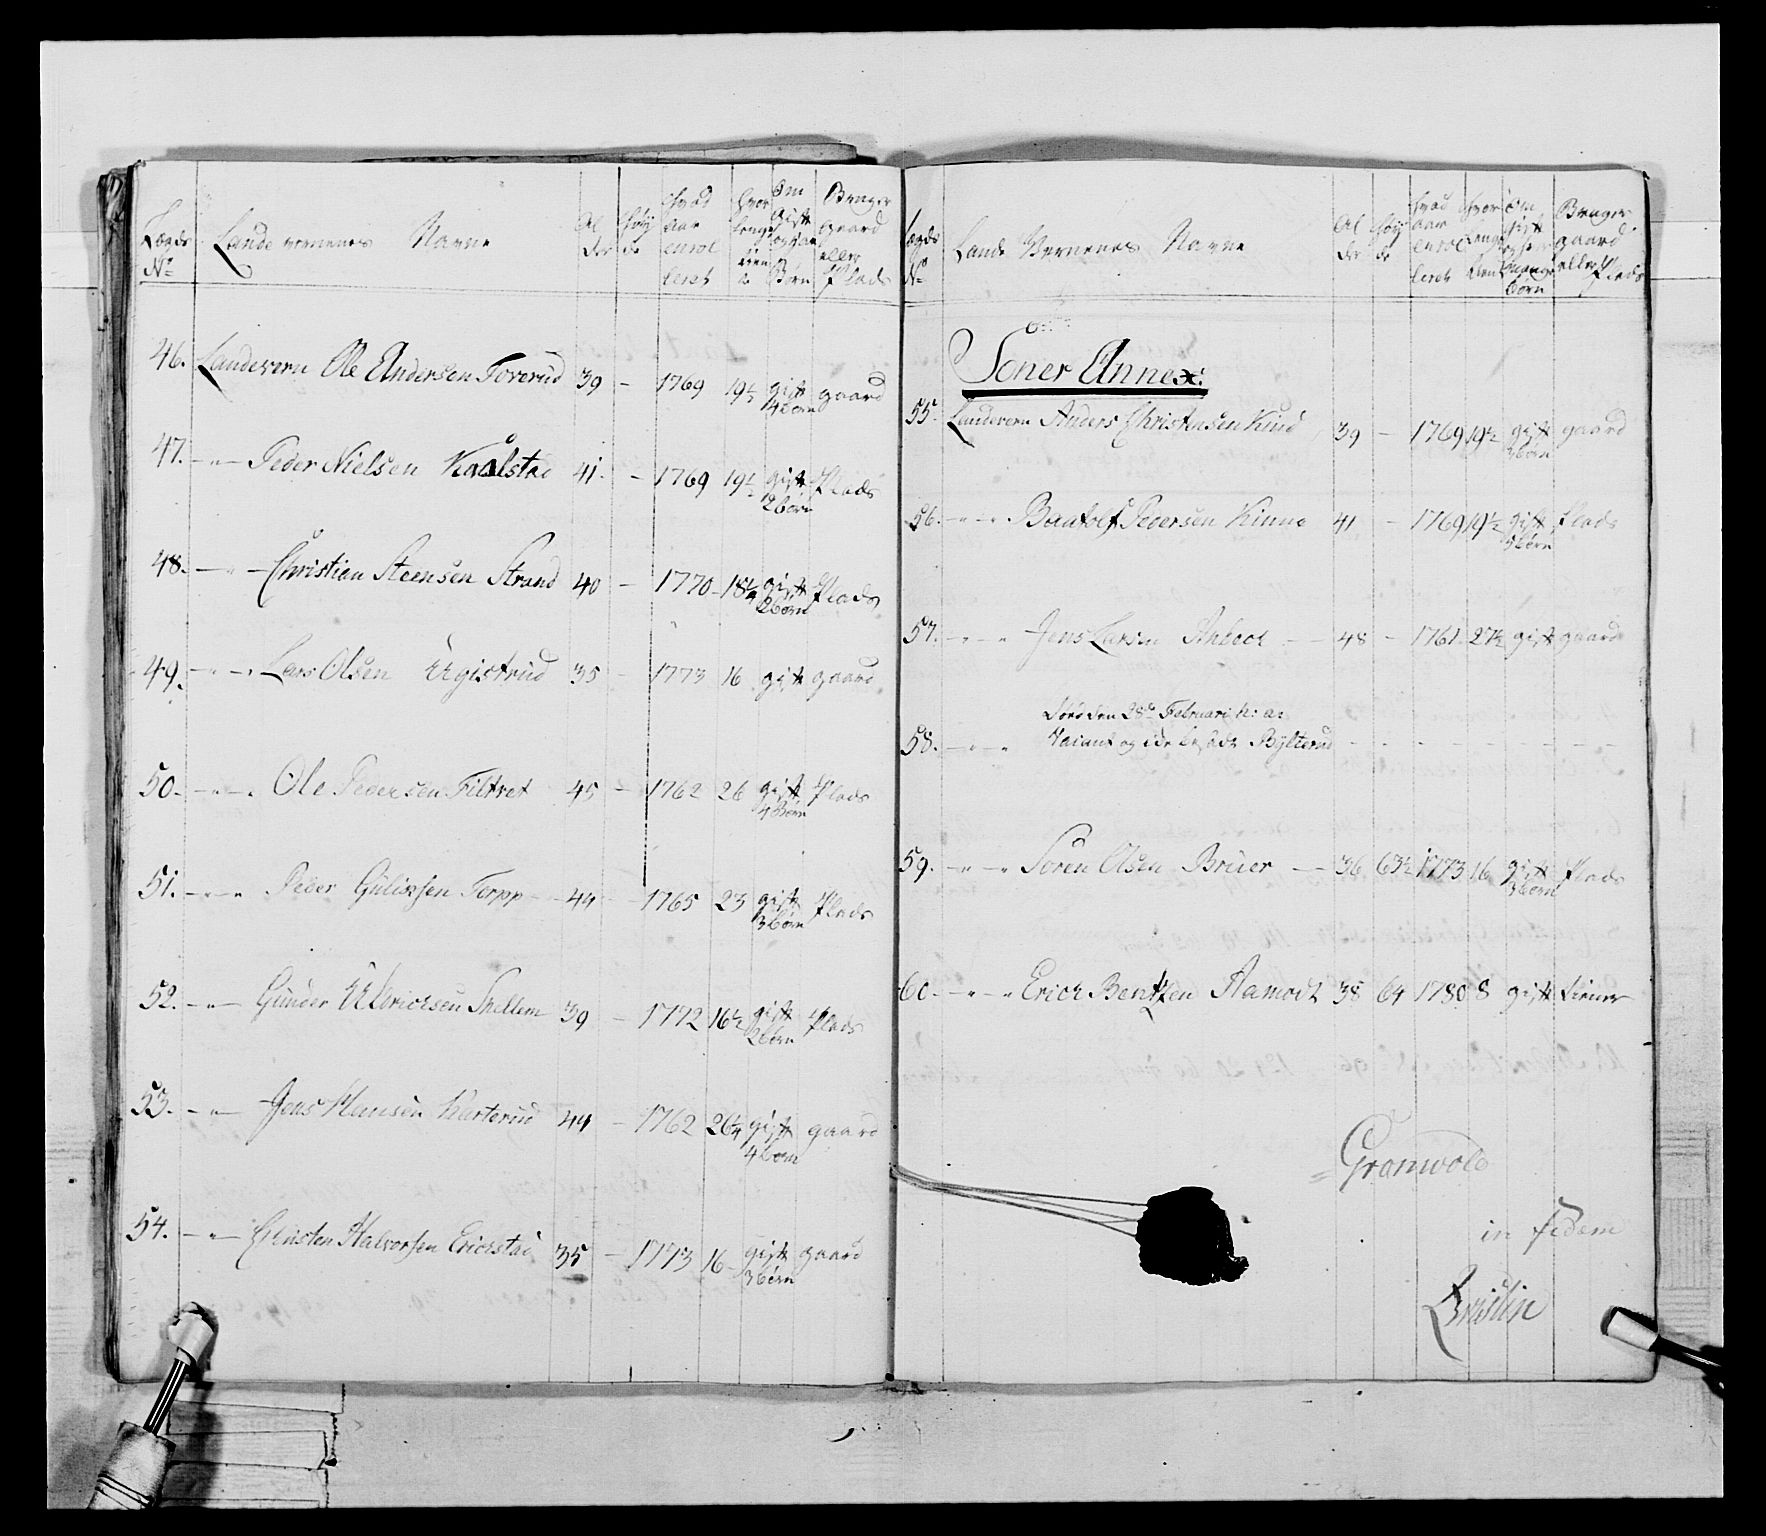 Lægds No
Lande vernenes Navne
Al der
Høy de
Hvad aar enrol leret
Hvor lenge tien t
Om Gift og har Børn
Bruger gaard eller Plads
46. Landevern Ole Andersen Foverud 39 – 1769 19½ gift 4 børn gaard
47. –"– Peder Nielsen Kaalstad 41. – 1769 19½ gift 2 børn Plads
48. –"– Christian Steensen Strand 40 – 1770 18¼ gift 2 børn Plads
49. –"– Lars Olsen Ugistrud 35 – 1773 16 gift gaard
50. –"– Ole Pedersen Filtvet 45 – 1762 26 gift 4 Børn Plads
51. –"– Peder Gulixsen Torpp 44 1765 23 gift 3 børn Plads
52. –"– Gunder Ulrichsen Skellem 39 – 1772 16½ gift 2 børn Plads
53. –"– Jens Hansen Karterud 44 – 1762 26¼ gift 4 børn gaard
54. –"– Halvorsen Erickstad 35 – 1773 16 gift 3 børn gaard
Lægds No
Lande Vernenes Navne
Al der
Høy de
Hvad aar enrol leret
Hvor lenge tient
Om gift og hvor mange børn
Bruger gaard eller Plads
Soner Annex:
55. Landevern Anders Christensen Kind 39 – 1769 19½ gift 3 børn gaard
56. –"– Baatolf Pedersen Kinne 41 – 1769 19½ gift 5 børn Plads
57. –"– Jens Larsen – 48 – 1761. 27½ gift gaard
Døde den 28de Februari h: a:
58. –"– Vacant og ide besadt Bylterud – – – – –
59. –"– Søren Olsen Bruer – 36 63½ 1773 16 gift 3 børn Plads
60. –"– Erich Bentzen Aamodt 38 64 1780 8 gift tiener
Gronwold
in fidem